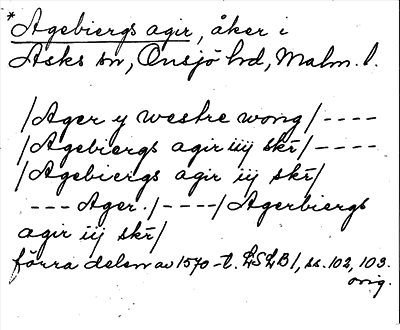 *Agebiergs agir, åker i
Asks sn, Onsjö hd, Malm. l.
/Ager y westre wong/ ----
/Agebiergs agir iiij skr̄/ ----
/Agebiergs agir iij skr̄/
--- Ager./ ----/ Agerbiergs
agir iij skr̄/
förra delen av 1570-t. LSLB1, ss. 102, 103.
orig.